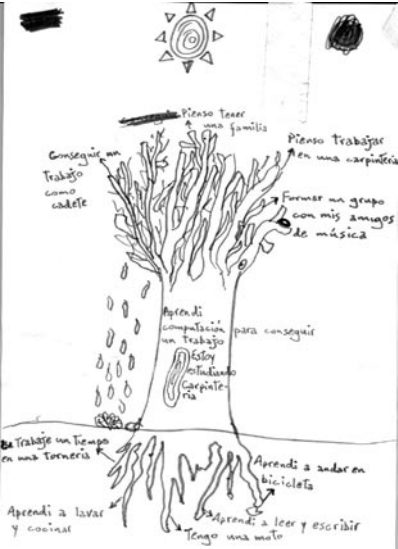 Pienso tener
una familia
Conseguir un
trabajo
como
cadete
Pienso Trabajar
en una carpinteria
Formar un grupo
con mis amigos
de música
Aprendi
computación para conseguir
un trabajo
Estoy
estudiando
Carpinte-
ria
Trabaje un Tiempo
en una Torneria
Aprendi a andar en
bicicleta
Aprendi a lavar
y cocinar
Aprendi a leer y escribir
Tengo una moto